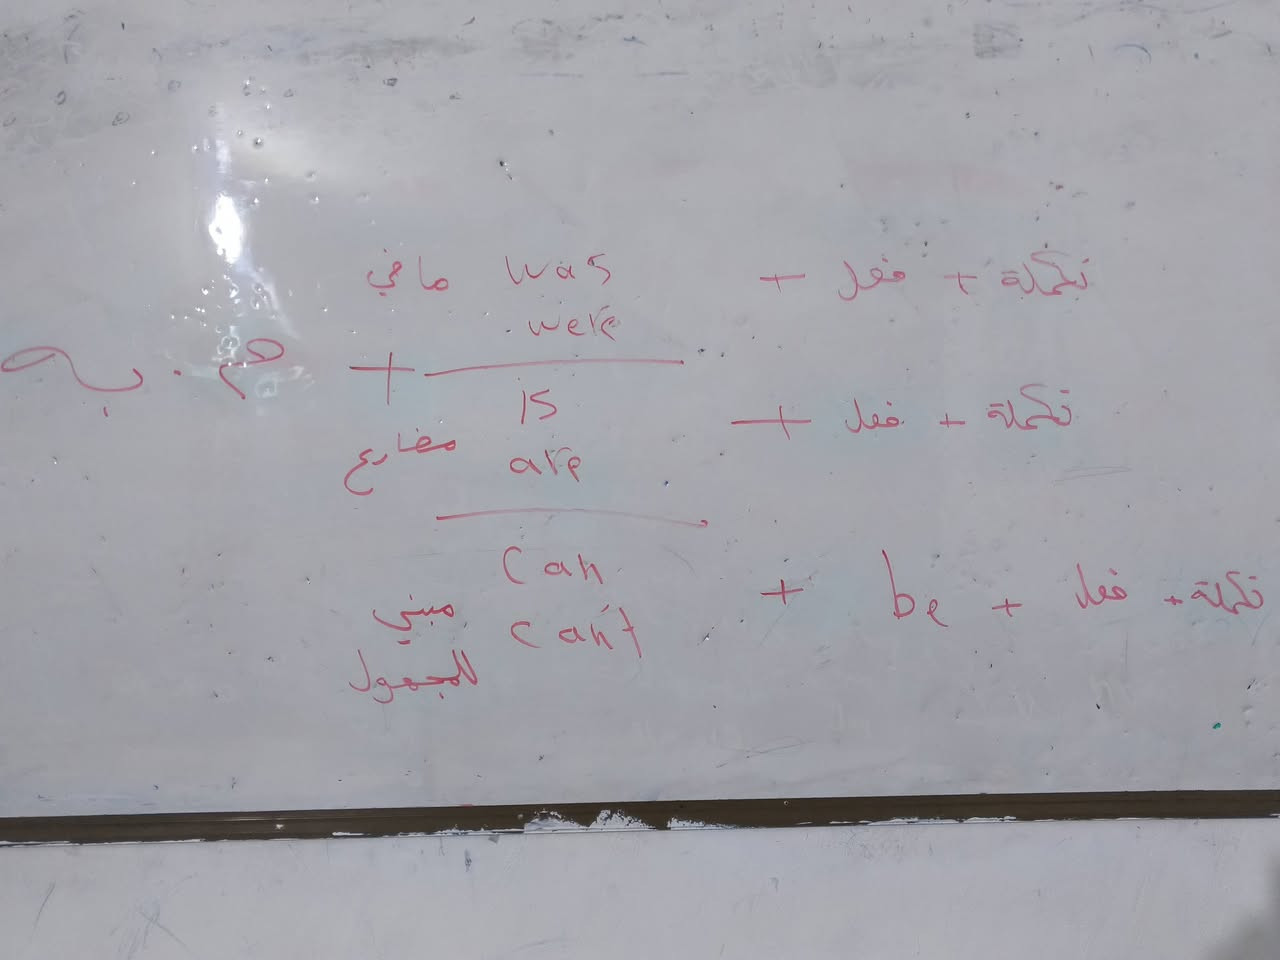 ماضي was + فعل + تكملة
were
م . به +
is + فعل + تكملة
مضارع are
can + be + فعل + تكملة
مبني can't
للمجهول